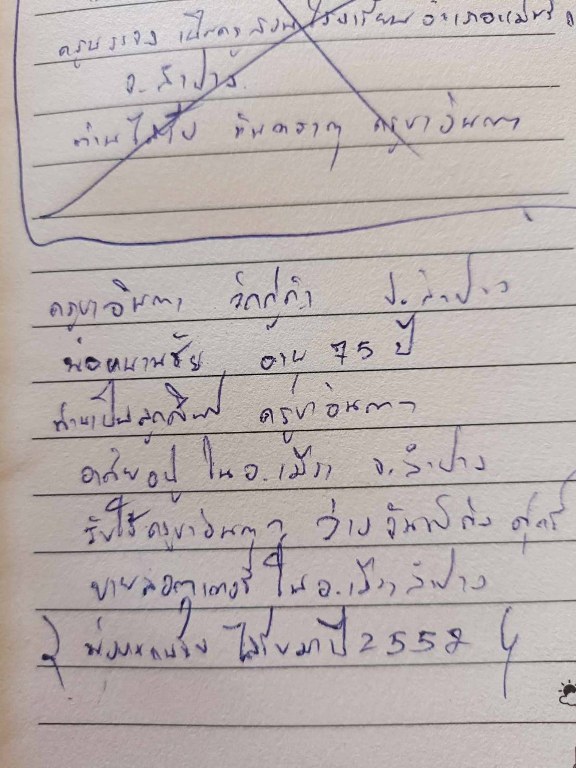 ครูบรรจง เป็นครูสอน โรงเรียน อำเภอแม่
จ.ลำปาง
ท่านได้ไป ครูบาอินตา
ครูบาอินตา วัดคู่คำ จ.ลำปาง
พ่อหนานชัย อายุ 75 ปี
ท่านเป็นลูกศิษย์ ครูบาอินตา
อาศัยอยู่ ใน อ.เมือง จ.ลำปาง
รับใช้ครูบาอินตา ช่วง วันจันทร์ถึง ศุกร์
ขายลอตเตอรี่ ใน อ.เมือง ลำปาง
พ่อหนานชัย ได้รับมาปี 2552